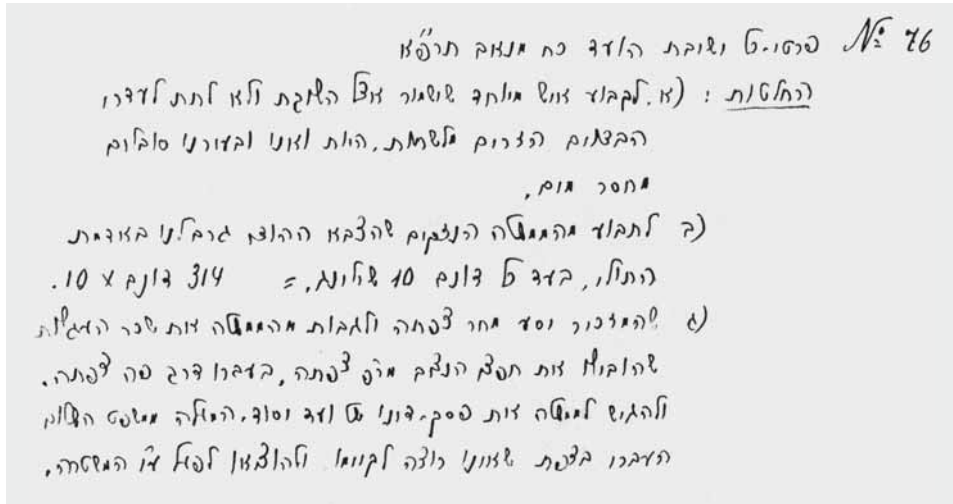 № 76 פרטי-כל ישיבת הועד כח מנ״א תרפ״א
החלטות : א). לקבוע איש מיוחד שישמור אצל השוקת ולא לתת לעדרי
הבצאים הזרים מלשתות, היות ואנו ובעירנו סובלים
מחסר מים.
ב) לתבוע מהממשלה הנזקים שהצבא ההודי גרם לנו באדמת
החולי, בעד כל דונם 10 שילינג, = 314 דונם x 10.
ג) שהמזכיר יסע מחר צפתה ולגבות מהממשלה את שכר העגלות
שהובילו את חפצי הנציב מר״פ צפתה, בעברו דרך פה צפתה.
ולהגיש לממשלה את פסק-דינו של ועד יסוד-המעלה ממשפט השלום
העברי בצפת שאינו רוצה לקיימו ולהוציאו לפעל ע״י המשטרה.